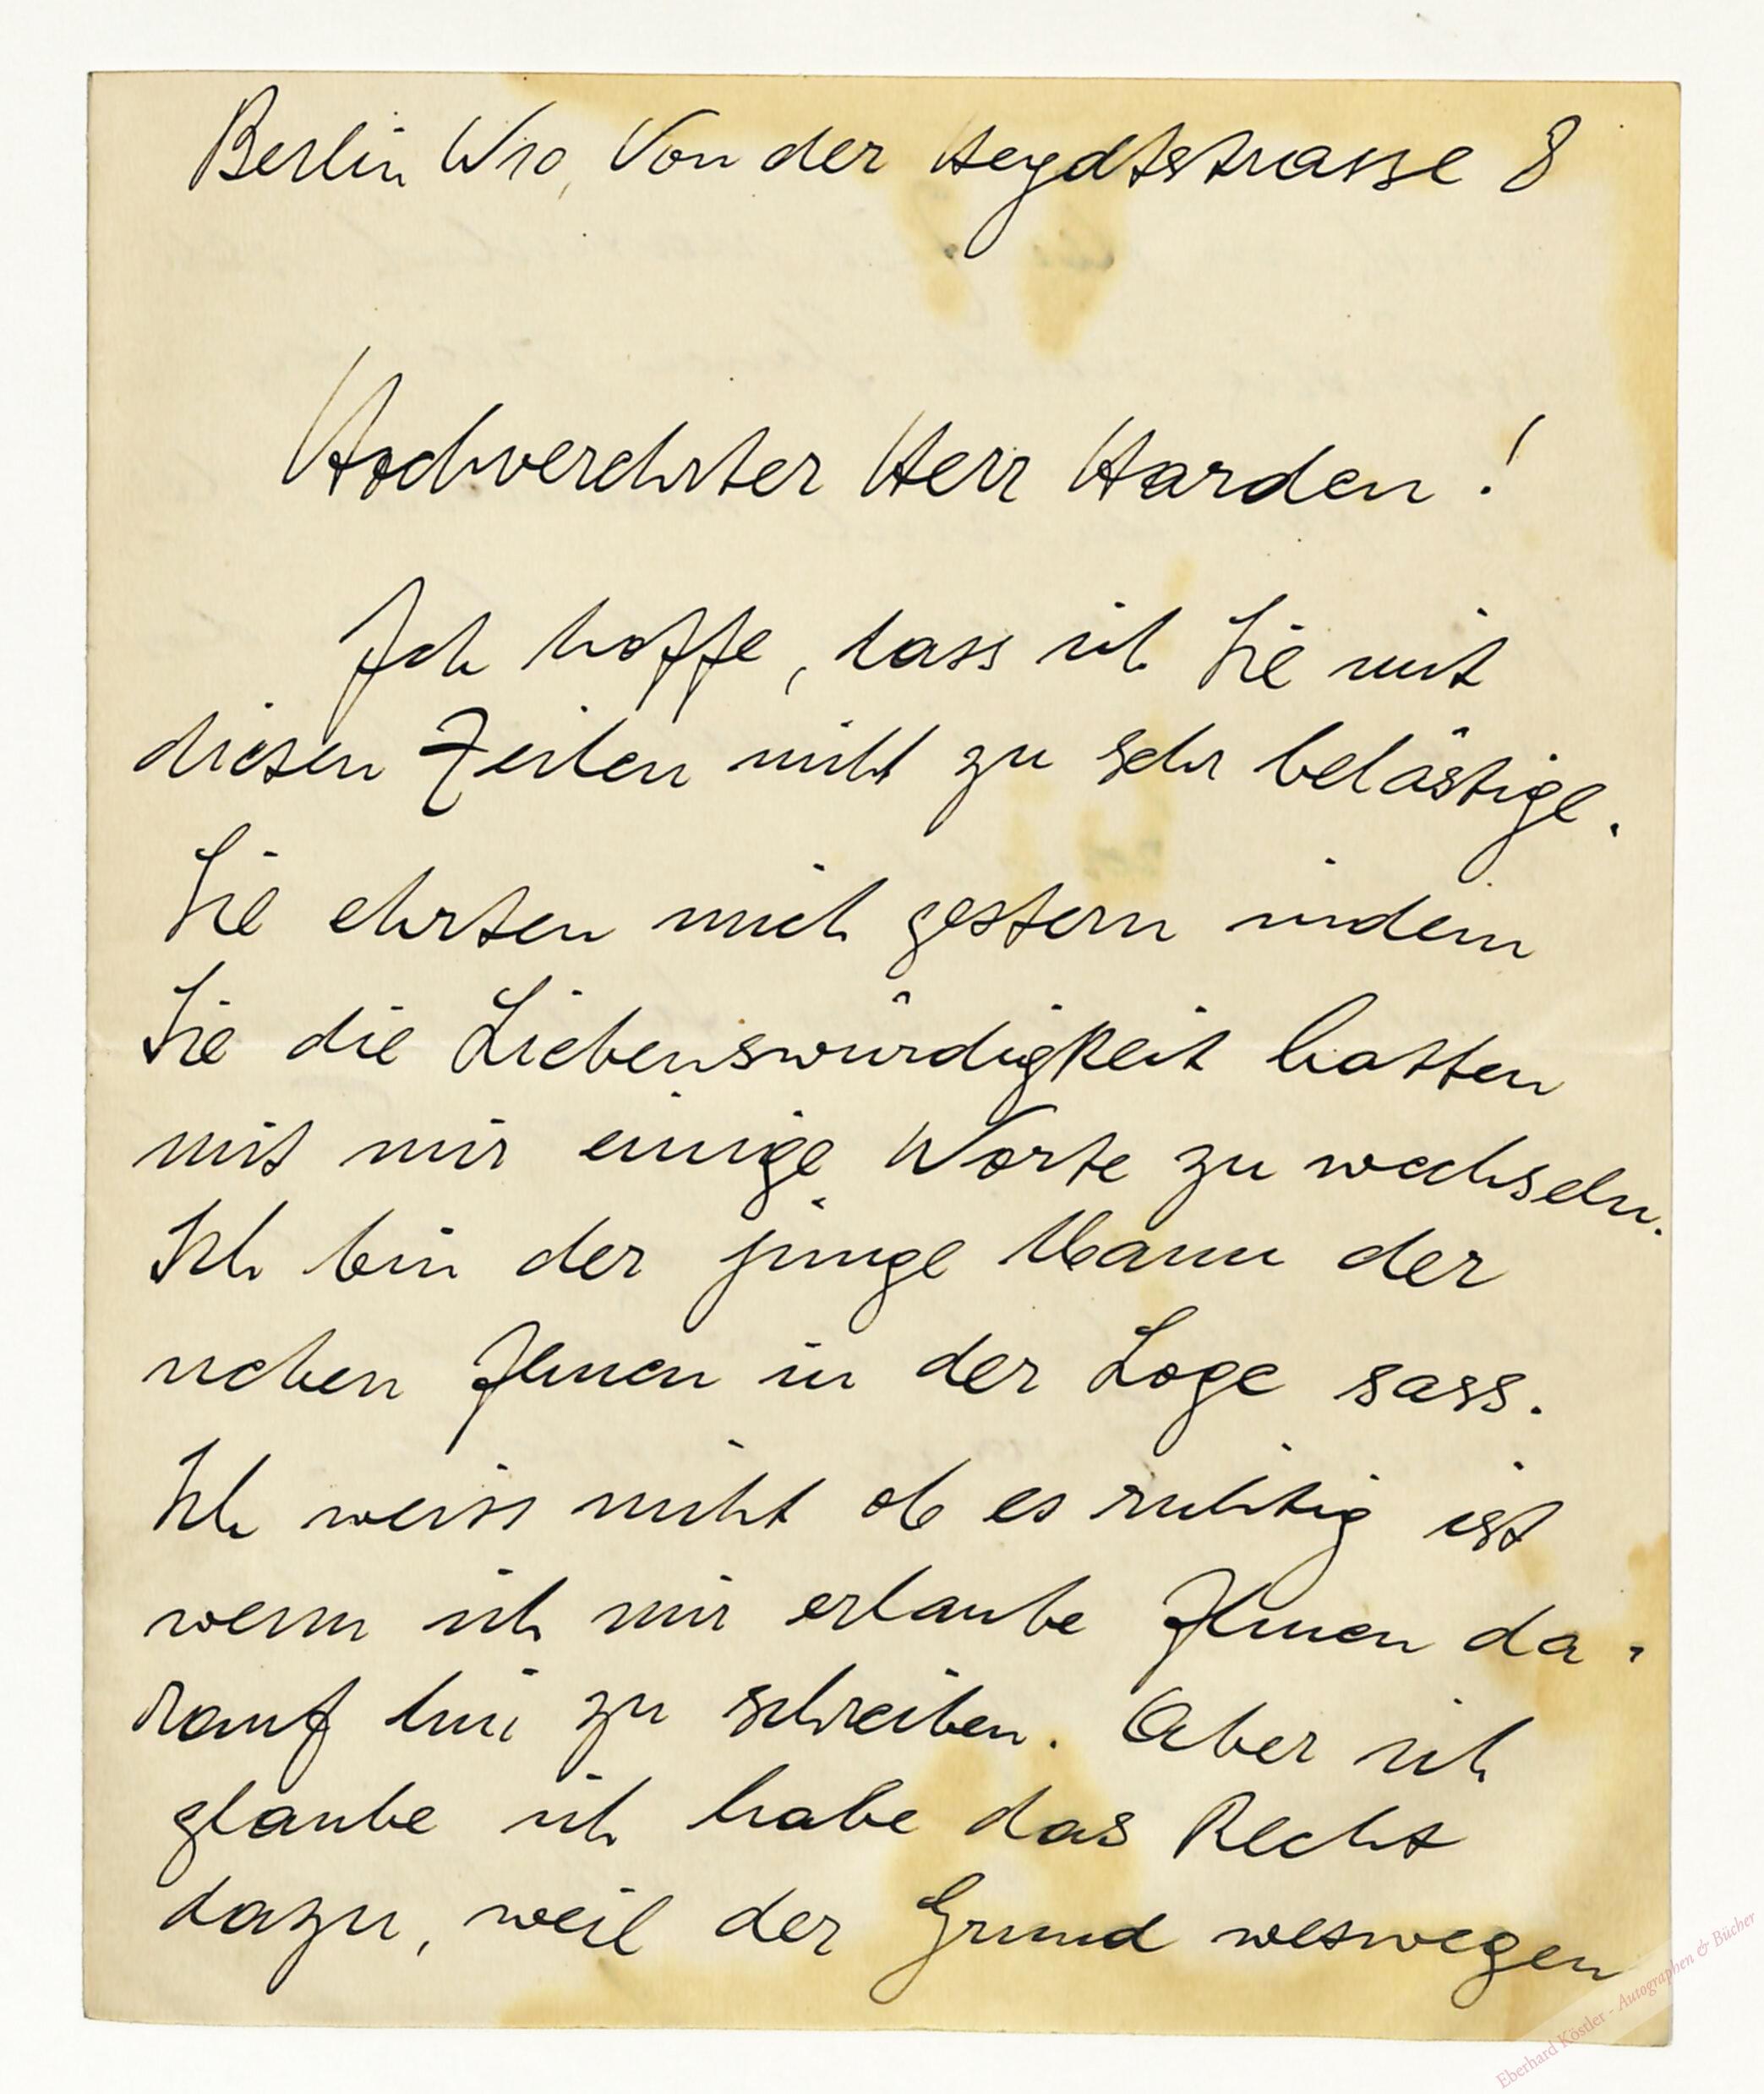 Berlin W10, Von der Heydtstrasse 8
Hochverehrter Herr Harden!
Ich hoffe, dass ich Sie mit
diesen Zeilen nicht zu sehr belästige.
Sie ehrten mich gestern indem
Sie die Liebenswürdigkeit hatten
mit mir einige Worte zu wechseln.
Ich bin der junge Mann der
neben Ihnen in der Loge sass.
Ich weiss nicht ob es richtig ist
wenn ich mir erlaube Ihnen da-
rauf hin zu schreiben. Aber ich
glaube ich habe das Recht
dazu, weil der Grund weswegen
Eberhard Köstler - Autographen & Bücher